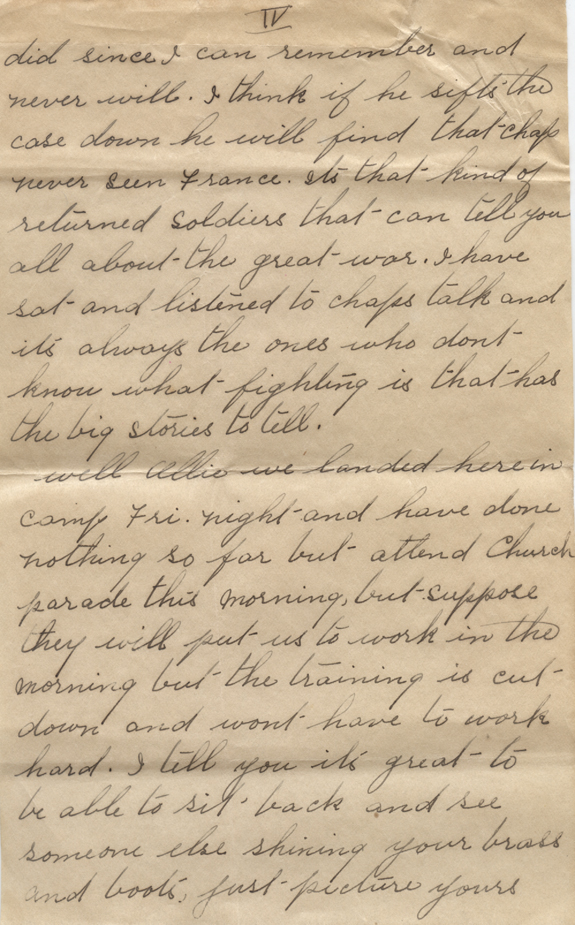 IV
did since I can remember and
never will. I think if he sifts the
case down he will find that chap
never seen France. its that kind of
returned soldiers that can tell you
all about the great war. I have
sat and listened to chaps talk and
its always the ones who dont
know what fighting is that has
the big stories to tell.
well Allie we landed here in
camp Fri. night and have done
nothing so far but attend Church
parade this morning, but suppose
they will put us to work in the
morning but the training is cut
down and wont have to work
hard. I tell you its great to
be able to sit back and see
someone else shining your brass
and boots, just picture yours